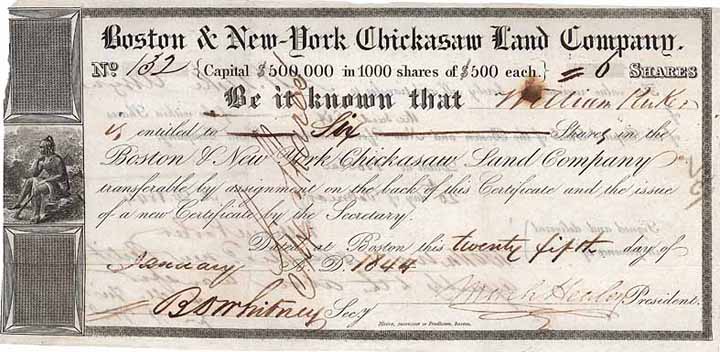 Boston & New-York Chickasaw Land Company.
No 132 {Capital $500,000 in 1000 shares of $500 each.} = 6 Shares
Be it known that William
is entitled to Six Shares in the
Boston & New York Chickasaw Land Company
transferable by assignment on the back of this Certificate and the issue
of a new Certificate by the Secretary.
Dated at Boston this twenty fifth day of
January A.D. 1844
Whitney Secy President.